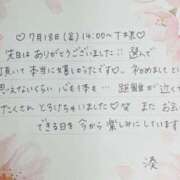 ♡7月18日(金)14:00〜 T様♡
先日はありがとうございました!! 選んで
頂いて本当に嬉しかったです♡、初めましてとは
思えないくらい 心も体も… 距離が近く
たくさん とろけちゃいました♡ 笑 またお会い
できる日を今から楽しみにしています
湊